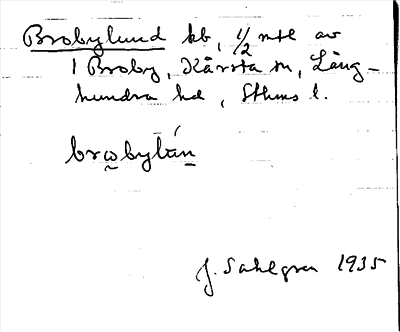 Brobylund kb, 1/2 mtl av
1 Broby, Kårsta sn, Lång-
hundra hd, Sthms l.
brωbylún
J. Sahlgren 1935